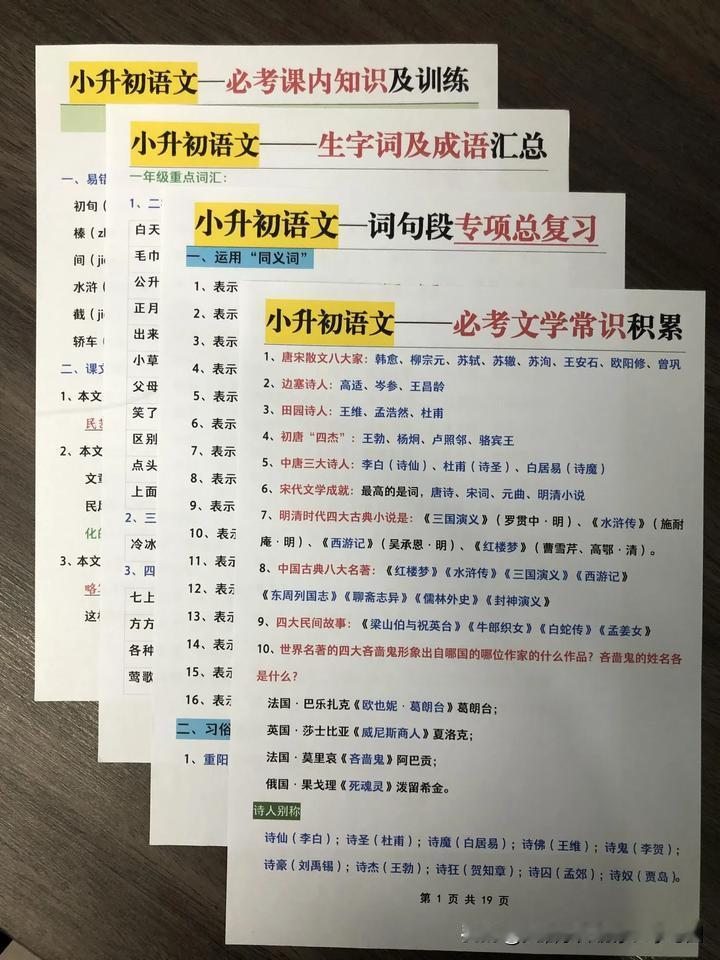 小升初语文—必考课内知识及训练
一、易错
初旬（
榛（zh
间（ji
水浒（
截（ji
轿车（
二、课文
1、本文
2、本文
文章
民风
化的
3、本文
略
这样
小升初语文——生字词及成语汇总
一年级重点词汇：
1、二
白天
毛巾
公升
正月
出来
小草
父母
笑了
区别
点头
上面
2、三
冷冰
3、四
七上
方方
各种
莺歌
小升初语文—词句段专项总复习
一、运用“同义词”
1、表示
2、表示
3、表示
4、表示
5、表示
6、表示
7、表示
8、表示
9、表示
10、表示
11、表示
12、表示
13、表示
14、表示
15、表示
16、表示
二、习俗
1、重阳
小升初语文——必考文学常识积累
1、唐宋散文八大家：韩愈、柳宗元、苏轼、苏辙、苏洵、王安石、欧阳修、曾巩
2、边塞诗人：高适、岑参、王昌龄
3、田园诗人：王维、孟浩然、杜甫
4、初唐“四杰”：王勃、杨炯、卢照邻、骆宾王
5、中唐三大诗人：李白（诗仙）、杜甫（诗圣）、白居易（诗魔）
6、宋代文学成就：最高的是词，唐诗、宋词、元曲、明清小说
7、明清时代四大古典小说是：《三国演义》（罗贯中·明）、《水浒传》（施耐
庵·明）、《西游记》（吴承恩·明）、《红楼梦》（曹雪芹、高鄂·清）。
8、中国古典八大名著：《红楼梦》《水浒传》《三国演义》《西游记》
《东周列国志》《聊斋志异》《儒林外史》《封神演义》
9、四大民间故事：《梁山伯与祝英台》《牛郎织女》《白蛇传》《孟姜女》
10、世界名著的四大吝啬鬼形象出自哪国的哪位作家的什么作品？吝啬鬼的姓名各
是什么？
法国·巴乐扎克《欧也妮·葛朗台》葛朗台；
英国·莎士比亚《威尼斯商人》夏洛克；
法国·莫里哀《吝啬鬼》阿巴贡；
俄国·果戈理《死魂灵》泼留希金。
诗人别称
诗仙（李白）；诗圣（杜甫）；诗魔（白居易）；诗佛（王维）；诗鬼（李贺）；
诗豪（刘禹锡）；诗杰（王勃）；诗狂（贺知章）；诗囚（孟郊）；诗奴（贾岛）。
第 1 页 共 19 页